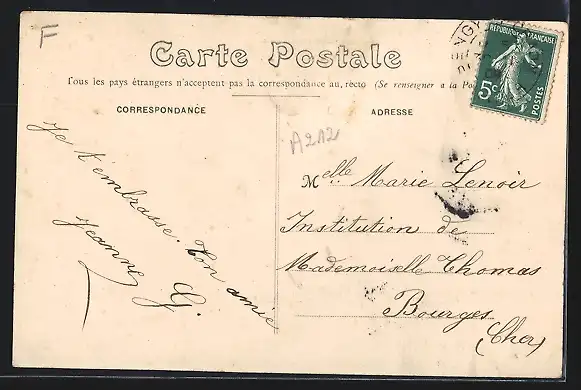 F
Carte Postale
Tous les pays étrangers n'acceptent pas la correspondance au recto (Se renseigner a la Po
CORRESPONDANCE
ADRESSE
REPUBLIQUE FRANÇAISE
5c
POSTES
A212
Je t'embrasse. Ton amie
Jeanne G.
Melle Marie Lenoir
Institution de
Mademoiselle Thomas
Bourges
(Cher)